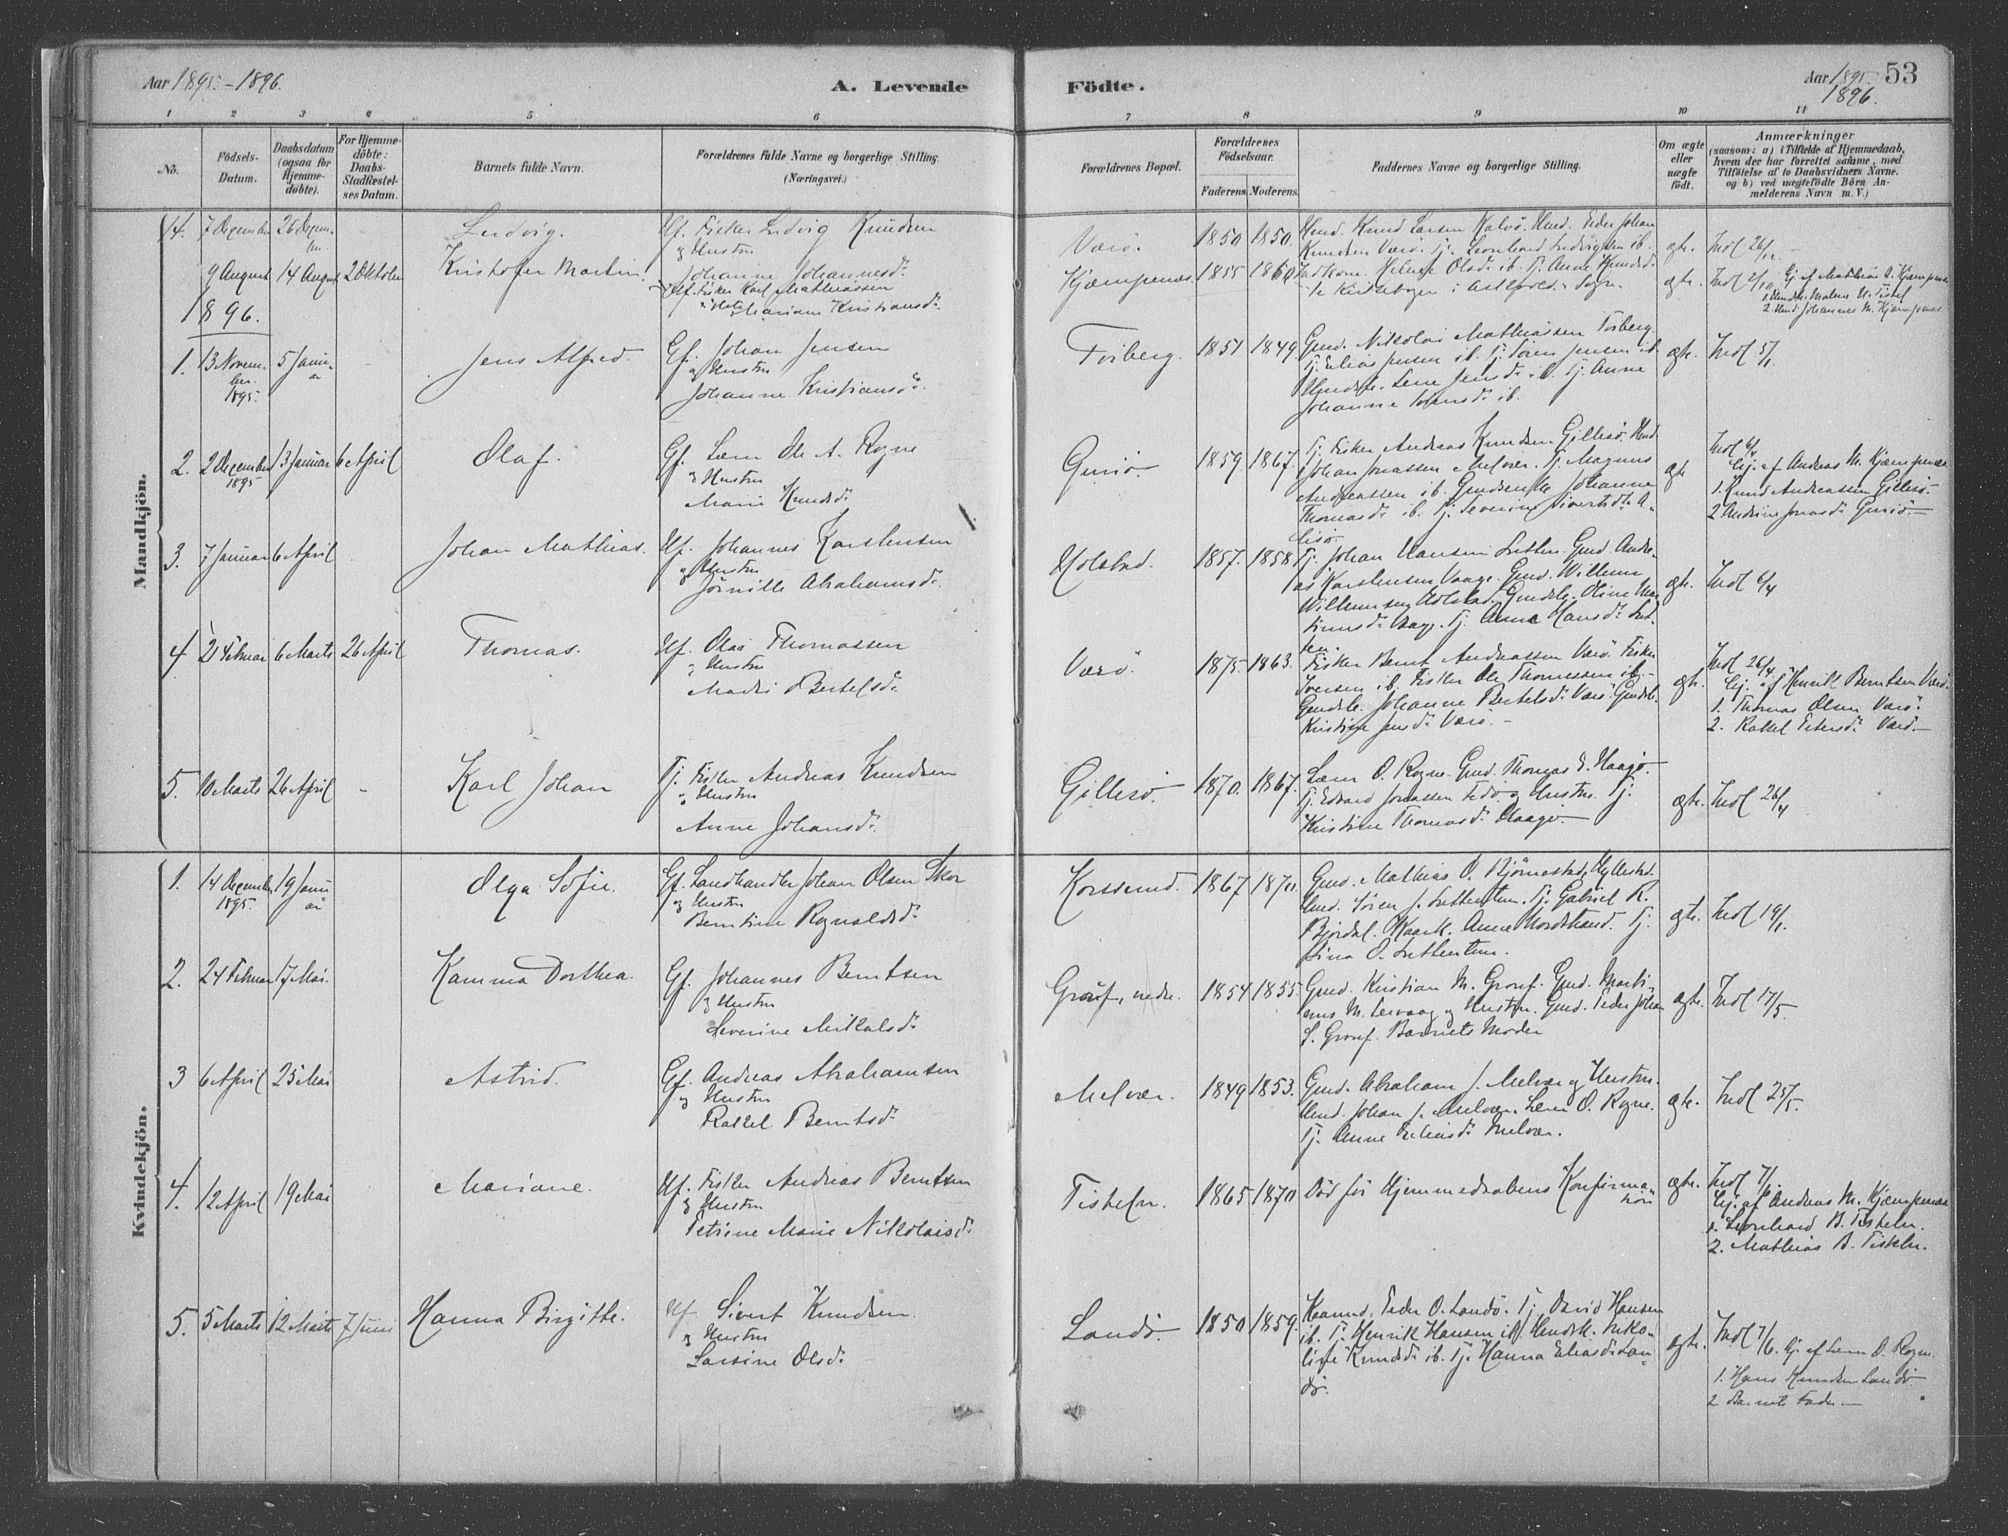 Aar 1895-1896.
A. Levende
Födte.
Aar 1895. 53
1896.
1 2 3 4 5 6 7 8 9 10 11
No.
Födsels-Datum.
Daabsdatum (ogsaa for Hjemme-döbte).
For Hjemme-döbte: Daabs-Stadfæstel-ses Datum.
Barnets fulde Navn.
Forældrenes fulde Navne og borgerlige Stilling.
(Næringsvei.)
Forældrenes Bopæl.
Forældrenes Födselsaar.
Faderens. Moderens.
Faddernes Navne og borgerlige Stilling.
Om ægte eller uægte födt.
Anmærkninger
(saasom: a) i Tilfælde af Hjemmedaab,
hvem der har forrettet samme, med
Tilföielse af to Daabsvidners Navne.
og b) ved uægtefödte Börn An-
melderens Navn m. V.)
Mandkjön.
14. 7 December 26 Decem-ber Ludvig. Uf. Fisker Ludvig Knudsen
og Hustru
Johanne Johannesd.
Værö. 1850 1850. Umd. Knud Larsen Kalvö. Umd. Peder Johan
Knudsen Værö. Tj. Leonhard Ludvigsen ib.
ægte. Indl 26/12
9 August 14 August 2 Oktober Kristofer Martin. Uf. Fisker Karl Mathiassen
og Hustru Mariane Kristiansd.
Kjæmpenes. 1855 1860
ægte. Indl 2/10. Gj. af Mathias A. Kjæmpenes
2. Umd. Johannes M. Kjæmpenes.
1896.
1. 13 Novem-ber 1895. 5 Janu-ar Jens Alfred. Gf. Johan Jensen
og Hustru
Johanne Kristiansd.
1851 1849 Gmd. Nikolai Mathiassen
Tj. Elias Jensen ib. Tj. Sören Jensen ib.
Johanne Hansd. ib.
ægte. Indl 5/1.
2. 2 December 1895 13 Januar 6 April Olaf. Gf. Lærer Ole A. Rogne
og Hustru
Marie Knudsd.
1859 1867. Tj. Fisker Andreas Knudsen Gillesö. Umd.
Johan Jonassen Melvær. Tj. Magnus
Andreassen ib. Gmdsenke Johanne
Thomasd. ib. Tj. Severine Sivertsd.
ægte Indl 6/4
Gj. af Andreas M. Kjæmpenes
1. Knud Andreassen Gillesö.
3. 7 Januar 6 April Johan Mathias. Uf. Johannes Karstensen
og Hustru
Abrahamsd.
Holstad. 1857. 1858 Tj. Johan Hansen
Gmd. Andre-
as Karstensen Vaage. Gmd. Willum
Willumsen Holstad.
Tj. Anna Hansd.
ægte. Indl 6/4
4 21 Februar 6 Marts 26 April Thomas. Uf. Olai Thomassen
og Hustru
Bertelsd.
Værö. 1875. 1863. Fisker Bernt Andreassen Værö. Fisker
Iversen ib. Fisker Ole Thomassen ib.
Johanne Bertelsd. Værö.
Kristine Jensd. Værö.
ægte. Indl 26/4.
Gj. af Henrik Berntsen Værö.
1. Thomas Olsen Værö.
2. Rakel Petersd. Værö.
5. 10 Marts 26 April Karl Johan Tj. Fisker Andreas Knudsen
og Hustru
Anne Johansd.
Gillesö. 1870. 1867. Lærer O. Rogne. Gmd. Thomas E. Haagö.
Tj. Edvard Jonassen og Hustru. Tj.
Kristine Thomasd. Haagö.
ægte. Indl 26/4
Kvindekjön.
1. 14 December 1895. 19 Janu-ar Olga Sofie. Gf. Landhandler Johan Olsen Skor
og Hustru
Berntine Rognaldsd.
Korssund. 1867 1870. Gmd. Mathias O. Bjørnestad, Hyllestad.
Tj. Gabriel R.
Anne Nordstrand. Tj.
ægte. Indl 19/1.
2. 24 Februar 17 Mai. Kamma Dorthea. Gf. Johannes Berntsen
og Hustru
Severine Mikalsd.
Gröuf, nedre. 1854 1855. Gmd. Kristian M. Grouf. Gmd. Marti-
nus M. Leivaag og Hustru. Gmd. Peder Johan
S. Grouf. Barnets Moder
ægte. Indl 17/5.
3 6 April 25 Mai Astrid. Gf. Andreas Abrahamsen
og Hustru
Rakel Berntsd.
Melvær. 1849 1853. Gmd. Abraham J. Melvær og Hustru.
Umd. Johan J. Melvær. Lærer O. Rogne.
Tj. Anne Melvær.
ægte. Indl 25/5.
4. 12 April 19 Mai Mariane. Uf. Fisker Andreas Berntsen
og Hustru
Petrine Marie Nikolaisd.
Tisteln. 1865 1870 Död för Hjemmedaabens Konfirma-
tion
ægte. Indl 7/6.
Gj. af Andreas M. Kjæmpenes
1. Leonhard B. Tisteln.
2. Mathias B. Tisteln.
5. 5 Marts 12 Marts 7 Juni Hanna Birgitte. Uf. Sivert Knudsen
og Hustru
Larsine Olsd.
Landö. 1850 1859. Peder O. Landö. Tj. David Hansen
ib. Tj. Henrik Hansen ib. Niko-
line Knudsd. ib. Tj. Hanna Eliasd. Lan-
dö.
ægte. Indl 7/6. Gj. af Lærer O. Rogne.
1. Hans Knudsen Landö
2 Barnets Fader